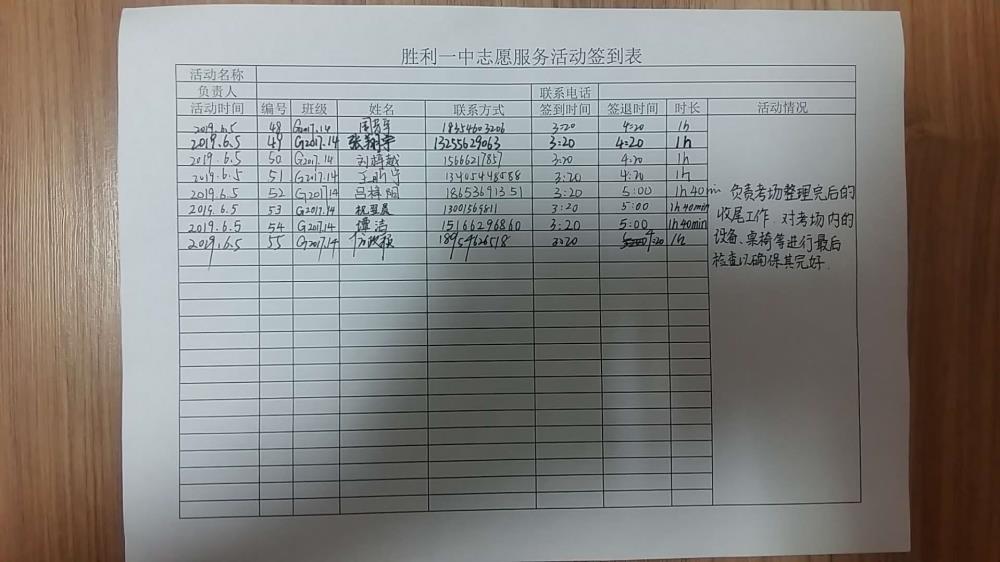 胜利一中志愿服务活动签到表
活动名称
负责人 联系电话
活动时间 编号 班级 姓名 联系方式 签到时间 签退时间 时长 活动情况
2019.6.5 48 G2017.14 18354603206 3:20 4:20 1h
2019.6.5 49 G2017.14 张翔宇 13255629063 3:20 4:20 1h
2019.6.5 50 G2017.14 刘梓越 15666217857 3:20 4:20 1h
2019.6.5 51 G2017.14 13405448588 3:20 4:20 1h
2019.6.5 52 G2017.14 吕梓阳 18653691351 3:20 5:00 1h40min
2019.6.5 53 G2017.14 祝昱晨 13001569811 3:20 5:00 1h40min
2019.6.5 54 G2017.14 谭洁 15166296860 3:20 5:00 1h40min
2019.6.5 55 G2017.14 18954626518 3:20 4:20 1h
负责考场整理完后的
收尾工作,对考场内的
设备、桌椅等进行最后
检查以确保其完好.